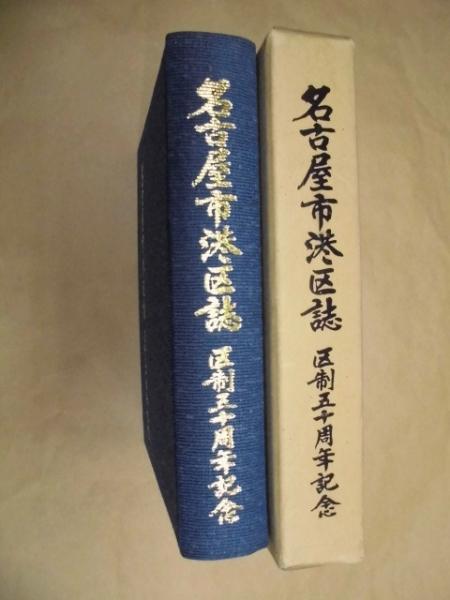 名古屋市港区誌 区制五十周年記念
名古屋市港区誌 区制五十周年記念